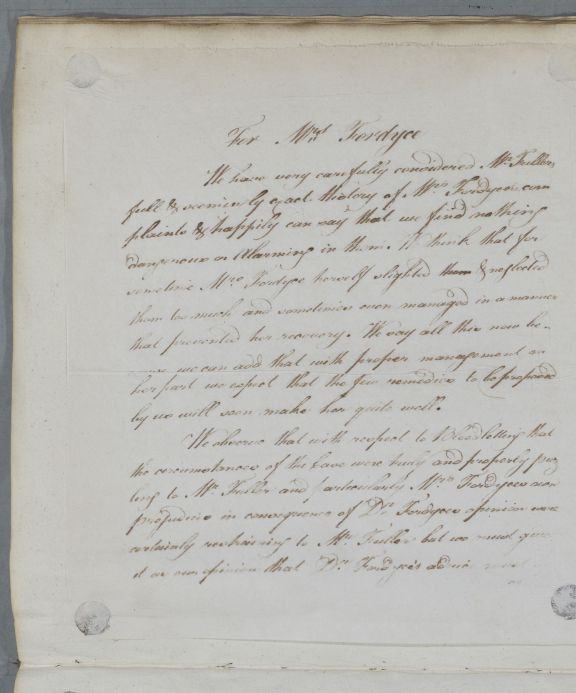 For Mrs Fordyce
We have very carefully considered Mr. Fullers
full & seemingly exact History of Mrs. Fordyces com
plaints & happily can say that we find nothing
dangerous or Alarming in them. We think that for
sometime Mrs. Fordyce herself slighted them & neglected
them too much and sometimes even managed in a manner
that prevented her recovery. We say all this now be-
we can add that with proper management on
her part we expect that the few remedies to be proposed
by us will soon make her quite well.
We observe that with respect to Bloodletting that
the circumstances of the Case were truly and properly puz
ling to Mr. Fuller and particularly Mrs. Fordyces own
prejudice in consequence of Dr. Fordyces opinion were
certainly restraining to Mr. Fuller but we must give
it as our opinion that Dr. Fordyce's advice